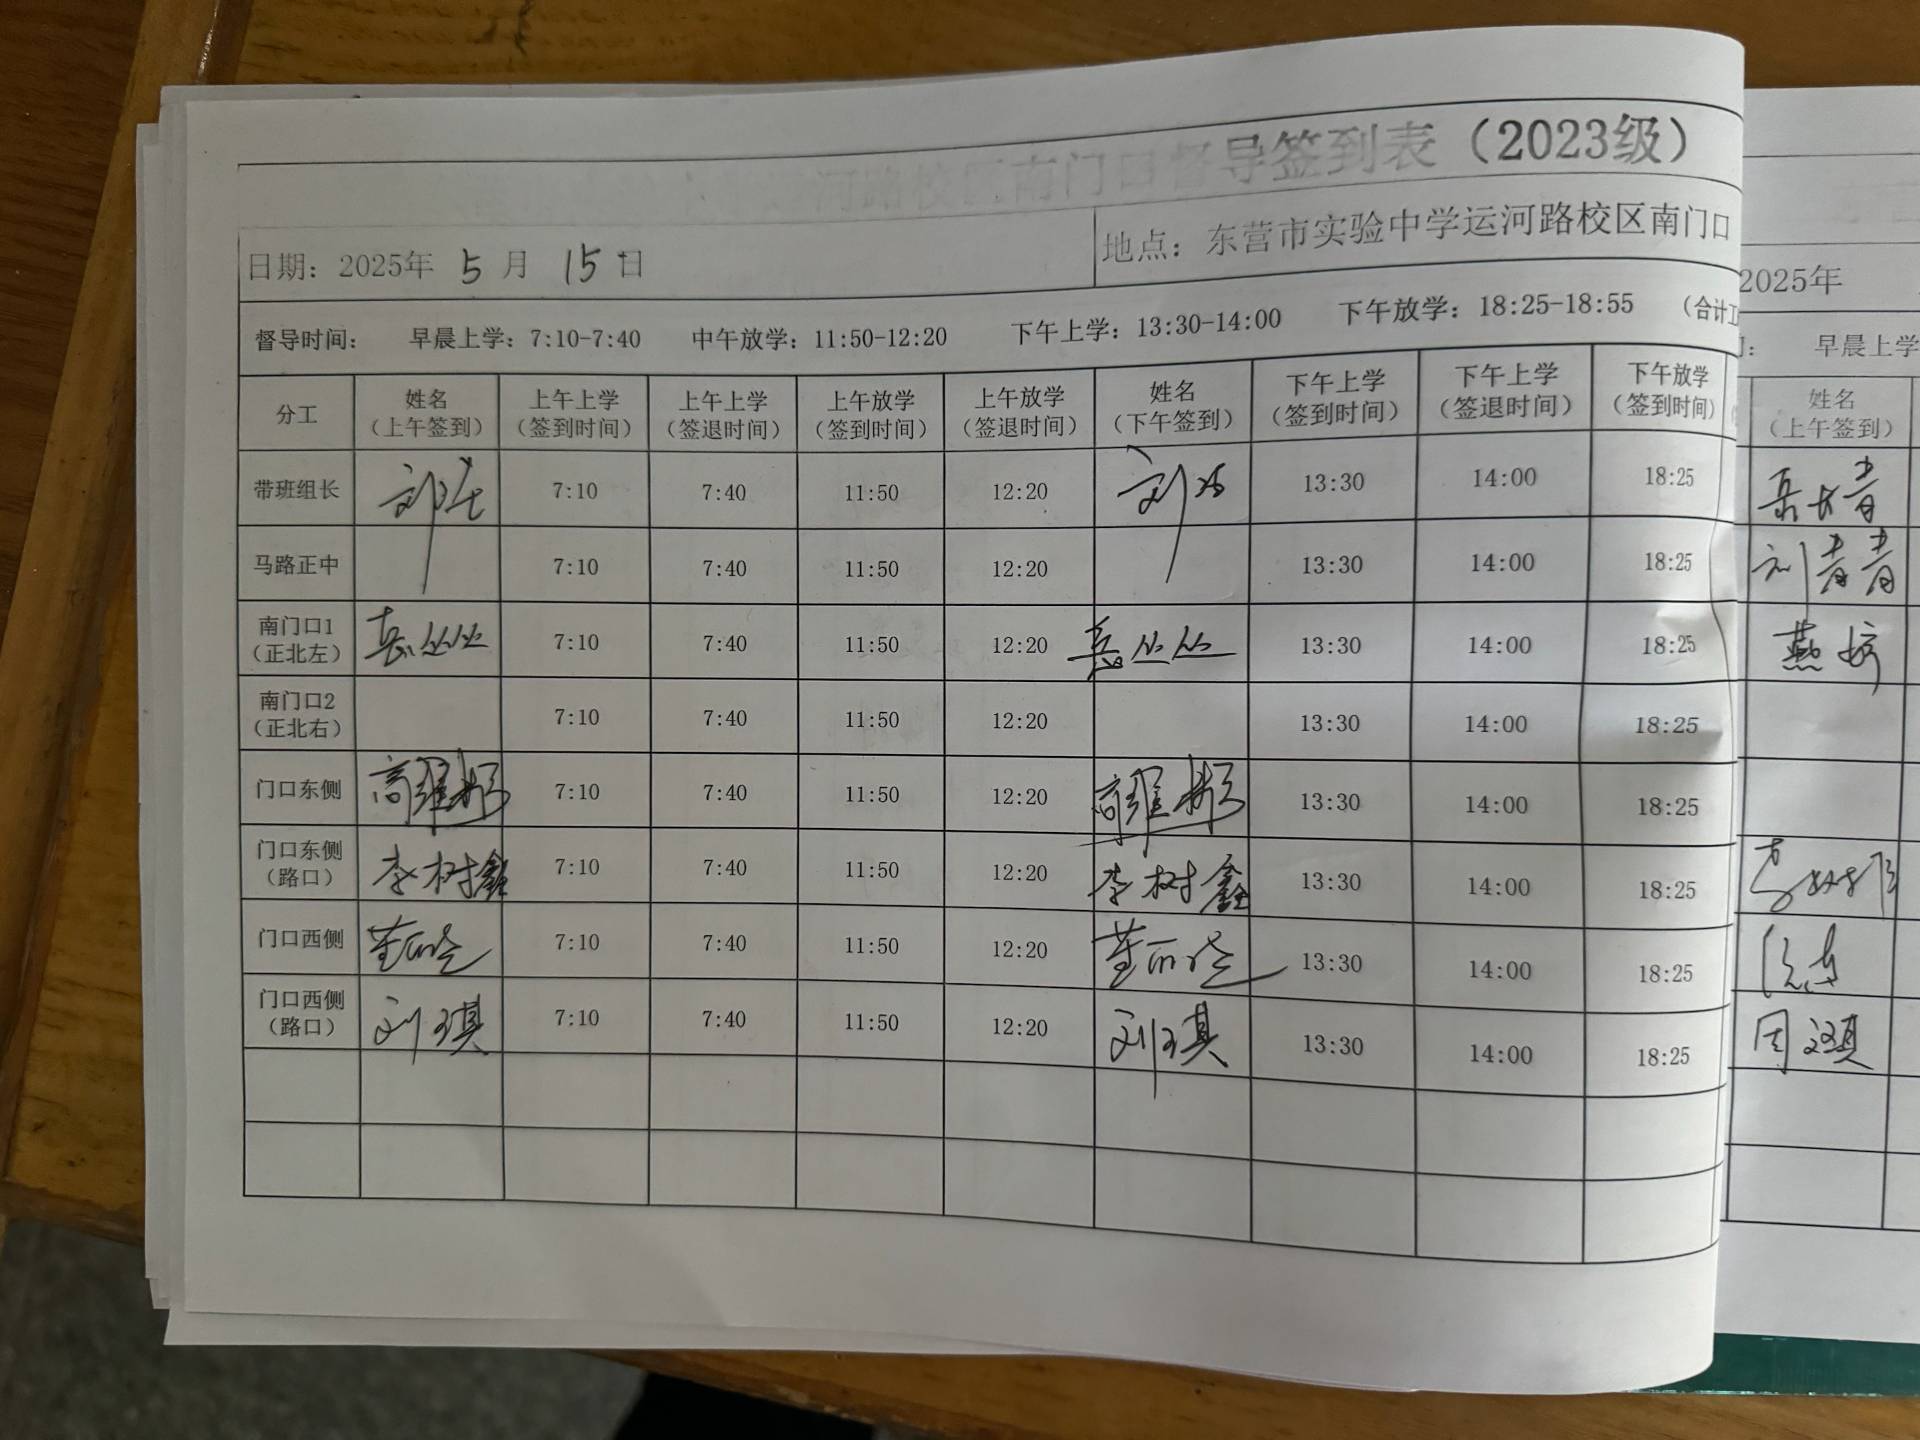 河路校区南门口督导签到表（2023级）
日期：2025年 5 月 15 日 地点：东营市实验中学运河路校区南门口
督导时间： 早晨上学：7:10-7:40 中午放学：11:50-12:20 下午上学：13:30-14:00 下午放学：18:25-18:55 （合计
分工 姓名（上午签到） 上午上学（签到时间） 上午上学（签退时间） 上午放学（签到时间） 上午放学（签退时间） 姓名（下午签到） 下午上学（签到时间） 下午上学（签退时间） 下午放学（签到时间）
带班组长 7:10 7:40 11:50 12:20 13:30 14:00 18:25
马路正中 7:10 7:40 11:50 12:20 13:30 14:00 18:25
南门口1（正北左） 袁丛丛 7:10 7:40 11:50 12:20 袁丛丛 13:30 14:00 18:25
南门口2（正北右） 7:10 7:40 11:50 12:20 13:30 14:00 18:25
门口东侧 7:10 7:40 11:50 12:20 13:30 14:00 18:25
门口东侧（路口） 李树鑫 7:10 7:40 11:50 12:20 李树鑫 13:30 14:00 18:25
门口西侧 7:10 7:40 11:50 12:20 13:30 14:00 18:25
门口西侧（路口） 刘琪 7:10 7:40 11:50 12:20 刘琪 13:30 14:00 18:25
2025年
早晨上学
姓名（上午签到）
刘青青
燕婷